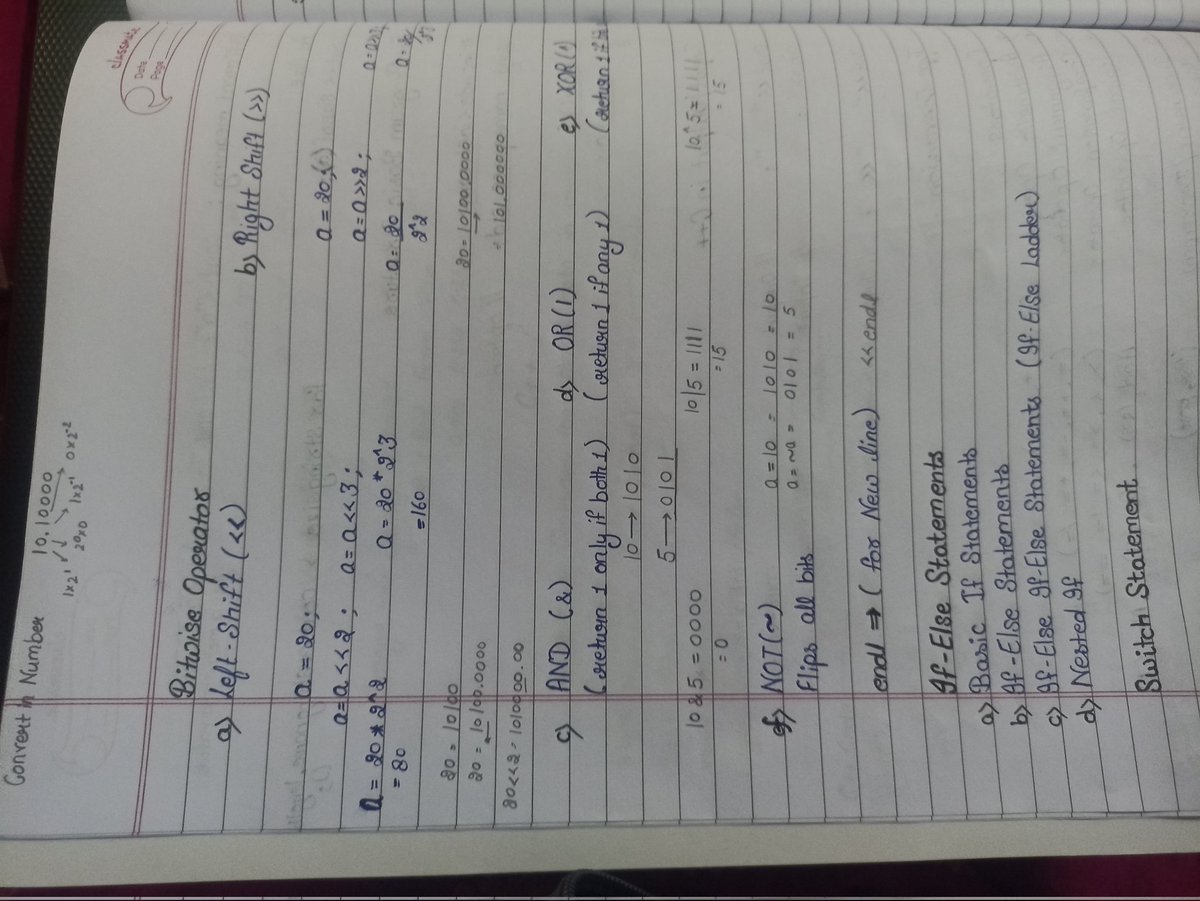 classmate
Date
Page
Convert in Number 10.10000
1x2¹ 2⁰x0 1x2⁻¹ 0x2⁻²
Bitwise Operator
a) Left-Shift (<<) b) Right Shift (>>)
a = 20; a = 20;
a = a << 2; a = a << 3; a = a >> 2;
a = 20 * 2^2 a = 20 * 2^3 a = 20
= 80 = 160 2^2
20 = 10100 20 = 10100.0000
20 = 10100.0000 101.000000
20<<2 = 1010000.00
c) AND (&) d) OR (|) e) XOR (^)
(return 1 only if both 1) (return 1 if any 1) (return 1 if
10 → 1010
5 → 0101
10 & 5 = 0000 10|5 = 1111 10^5 = 1111
= 0 = 15 = 15
f) NOT (~) a = 10 = 1010 = 10
Flips all bits a = ~a = 0101 = 5
endl ⇒ (for New line) <<endl
If-Else Statements
a) Basic If Statements
b) If-Else Statements
c) If-Else If-Else Statements (If-Else Ladder)
d) Nested If
Switch Statement